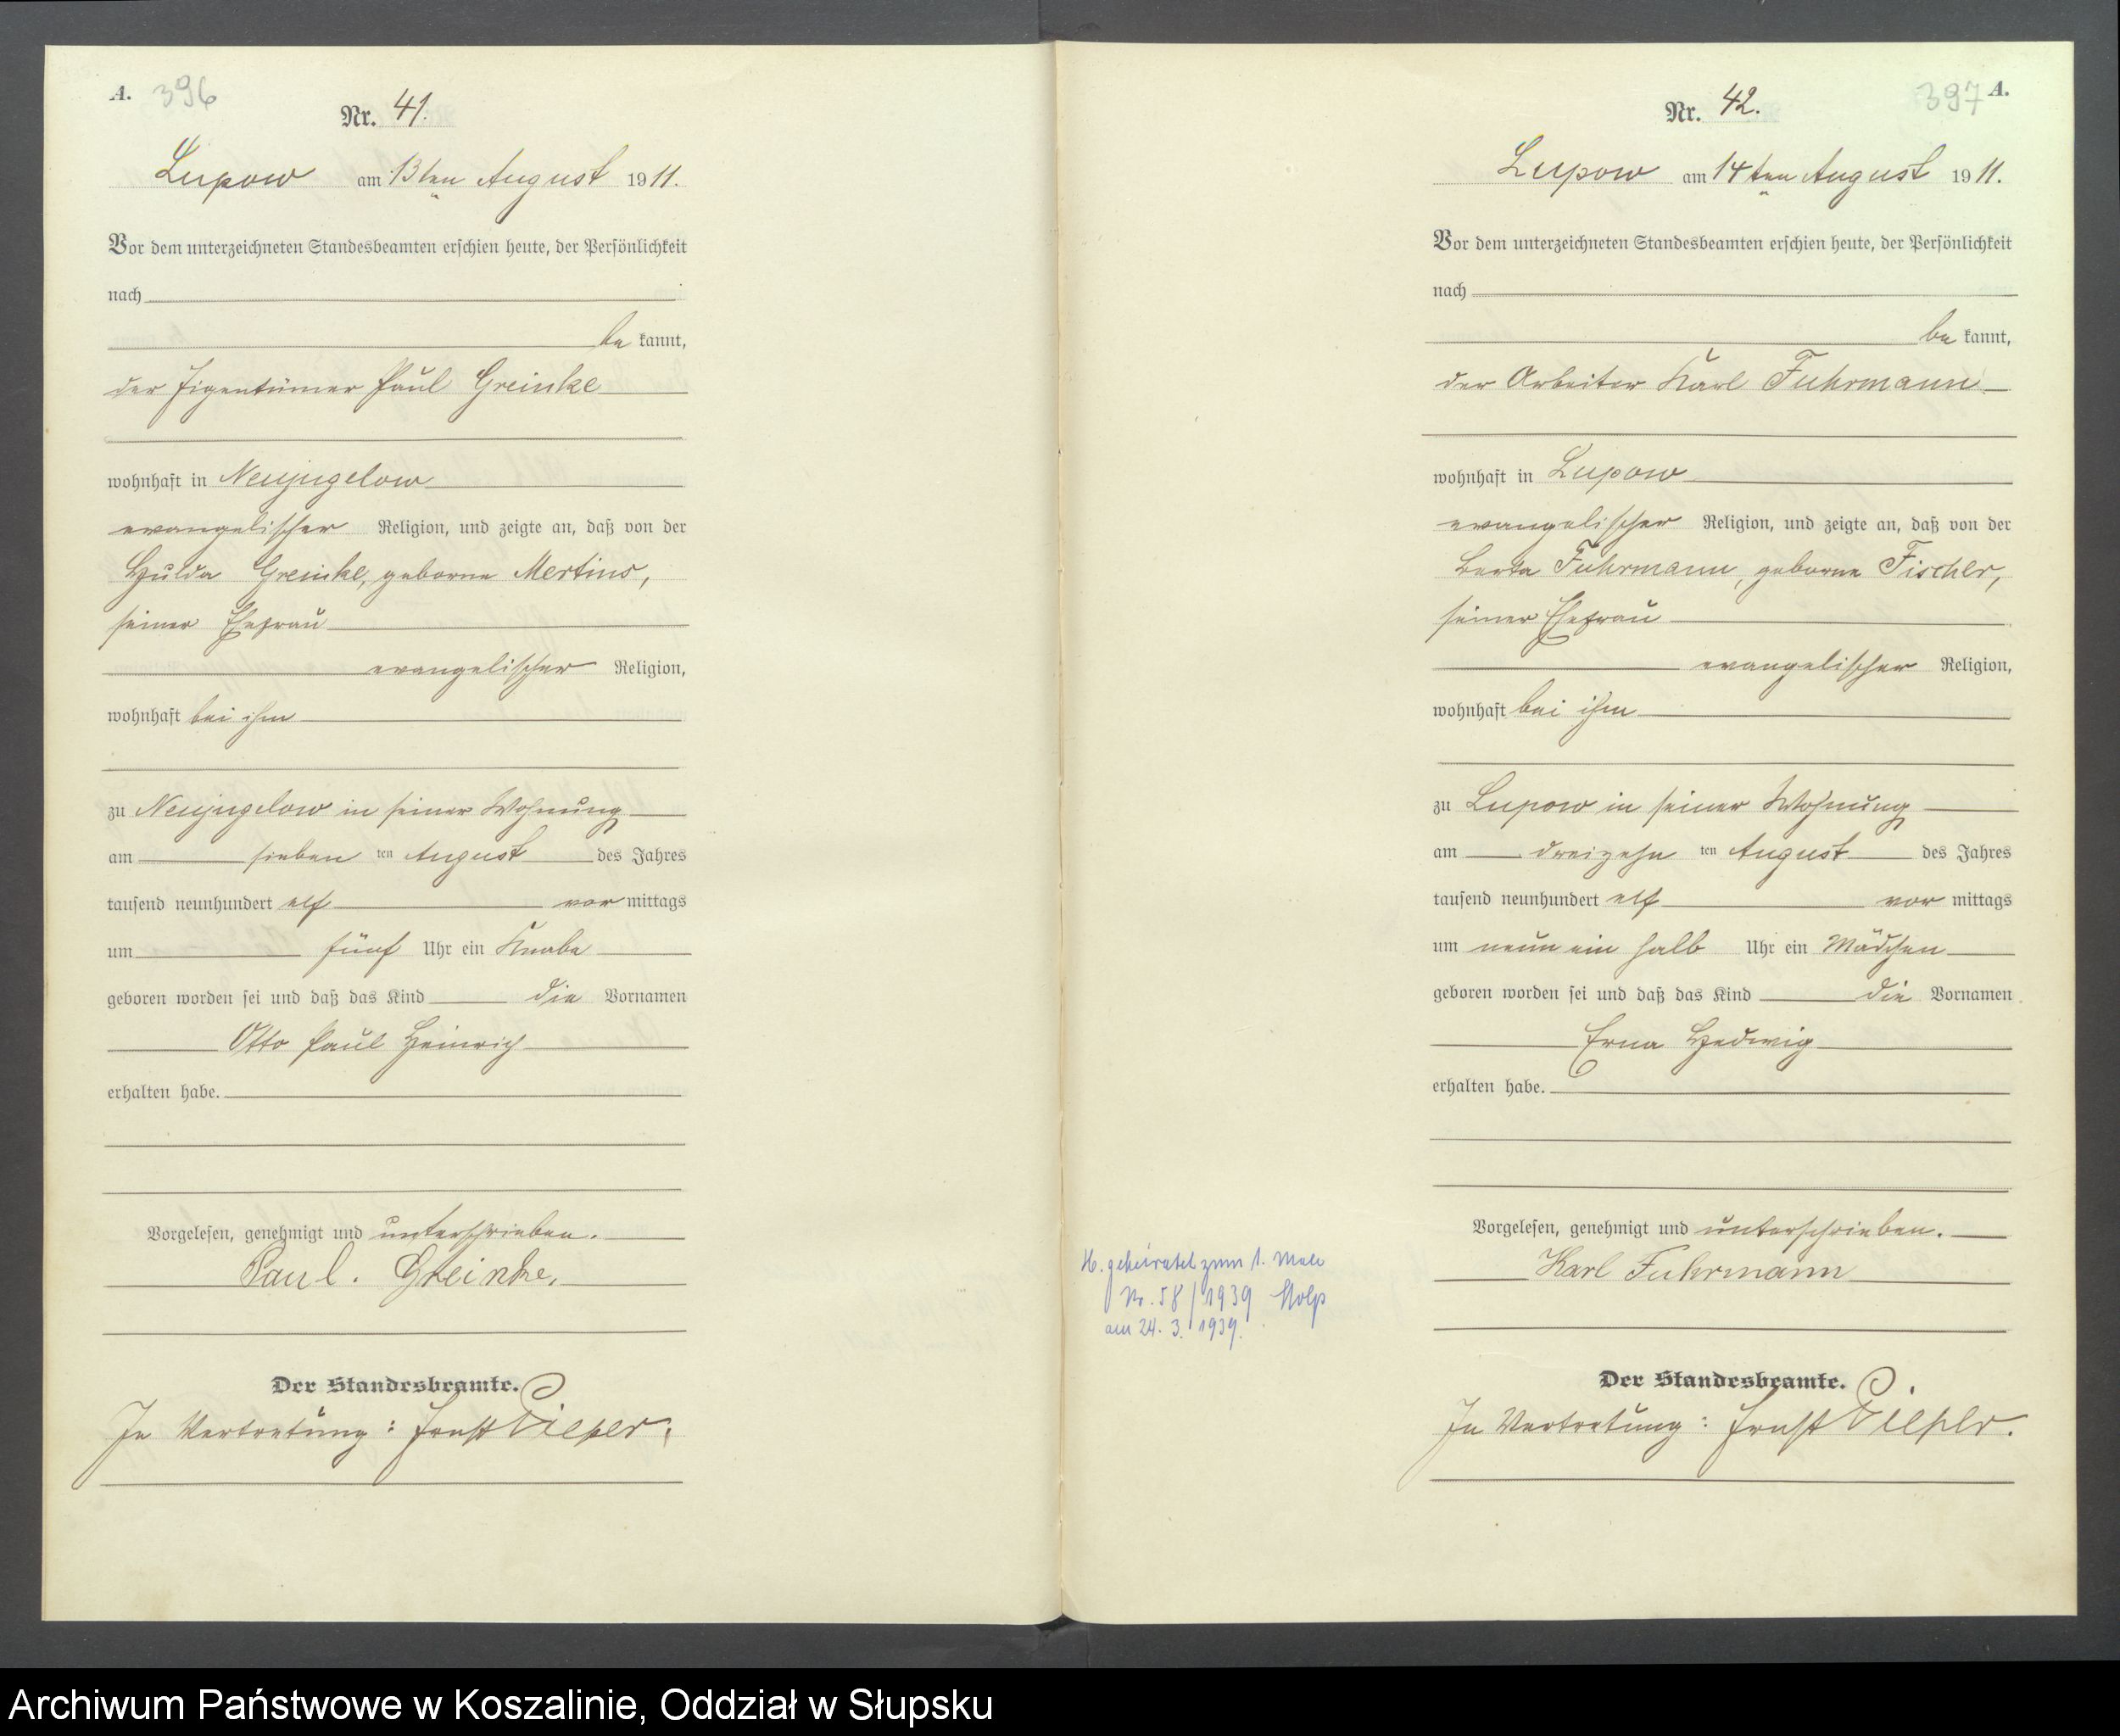 A. 396
Nr. 41.
Lupow am 13ten August 1911.
Vor dem unterzeichneten Standesbeamten erschien heute, der Persönlichkeit
nach
be kannt,
der Eigentümer Paul Greinke
wohnhaft in Neujugelow
evangelischer Religion, und zeigte an, daß von der
Hulda Greinke, geborne Mertins,
seiner Ehefrau
evangelischer Religion,
wohnhaft bei ihm
zu Neujugelow in seiner Wohnung
am sieben ten August des Jahres
tausend neunhundert elf vor mittags
um fünf Uhr ein Knabe
geboren worden sei und daß das Kind die Vornamen
Otto Paul Heinrich
erhalten habe.
Vorgelesen, genehmigt und unterschrieben.
Paul. Greinke.
Der Standesbeamte.
In Vertretung: Ernst Pieper.
397 A.
Nr. 42.
Lupow am 14ten August 1911.
Vor dem unterzeichneten Standesbeamten erschien heute, der Persönlichkeit
nach
be kannt,
der Arbeiter Karl Fuhrmann
wohnhaft in Lupow
evangelischer Religion, und zeigte an, daß von der
Berta Fuhrmann, geborne Fischer,
seiner Ehefrau
evangelischer Religion,
wohnhaft bei ihm
zu Lupow in seiner Wohnung
am dreizehn ten August des Jahres
tausend neunhundert elf vor mittags
um neun ein halb Uhr ein Mädchen
geboren worden sei und daß das Kind die Vornamen
Erna Hedwig
erhalten habe.
Vorgelesen, genehmigt und unterschrieben.
Karl Fuhrmann
Der Standesbeamte.
In Vertretung: Ernst Pieper.
H. geheiratet zum 1. Male
Nr. 58/1939 Stolp
am 24. 3. 1939.
Archiwum Państwowe w Koszalinie, Oddział w Słupsku